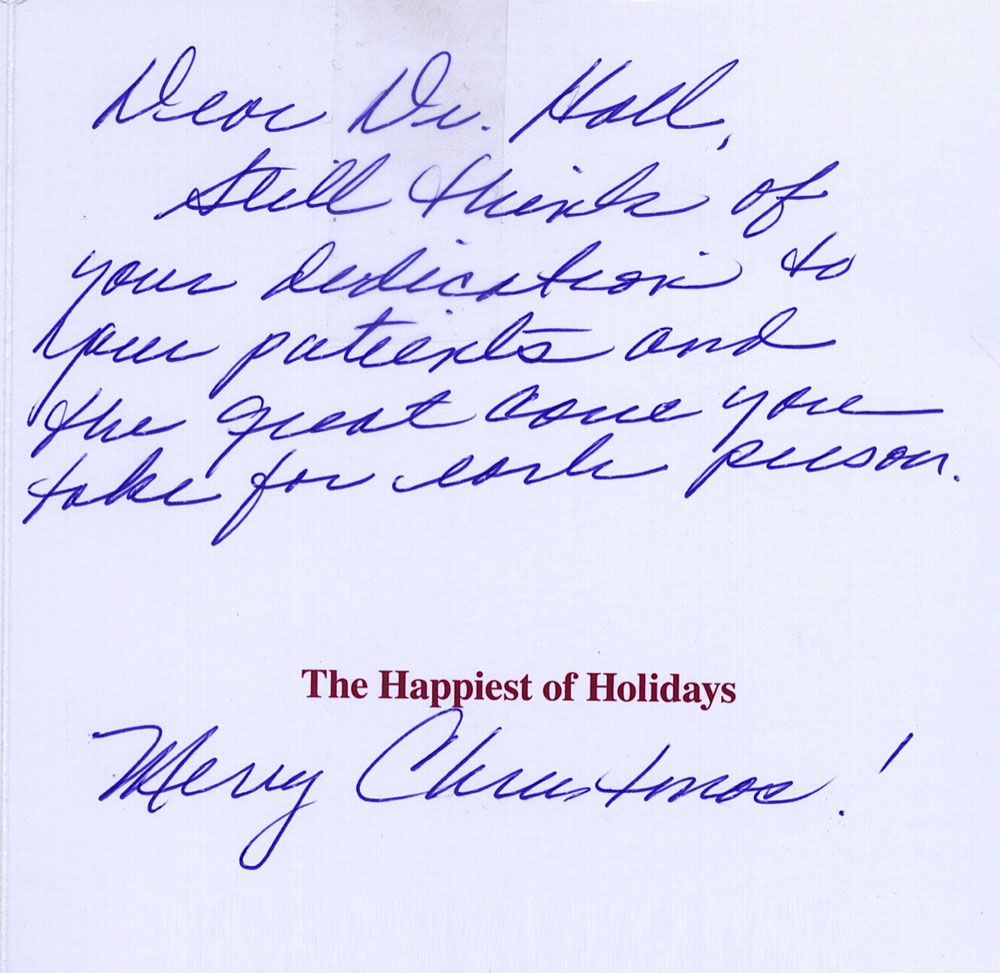 Dear Dr. Hall,
Still think of
your dedication to
your patients and
the great care you
take for each person.
The Happiest of Holidays
Merry Christmas!